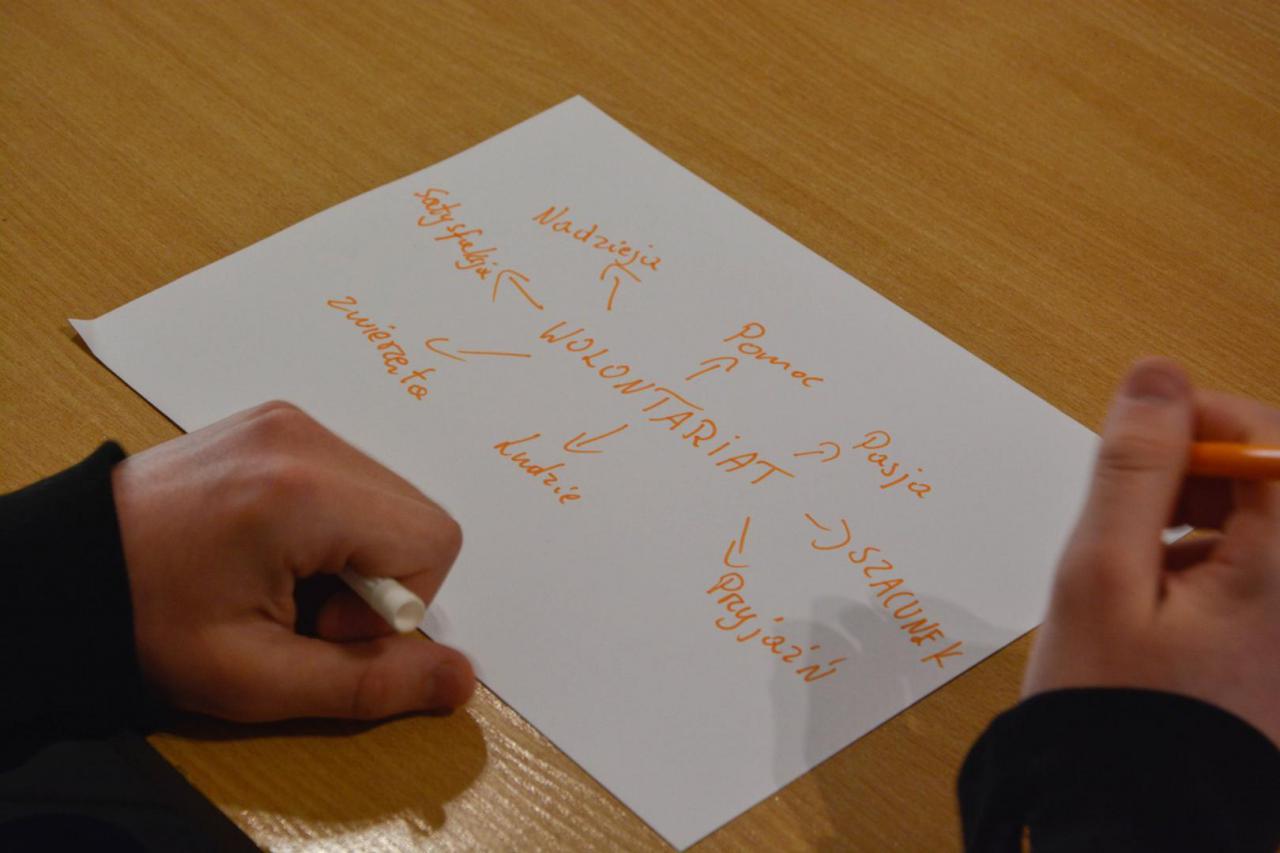 Satysfakcja
Nadzieja
zwierzęta
WOLONTARIAT
Pomoc
Ludzie
Pasja
Przyjaźń
SZACUNEK